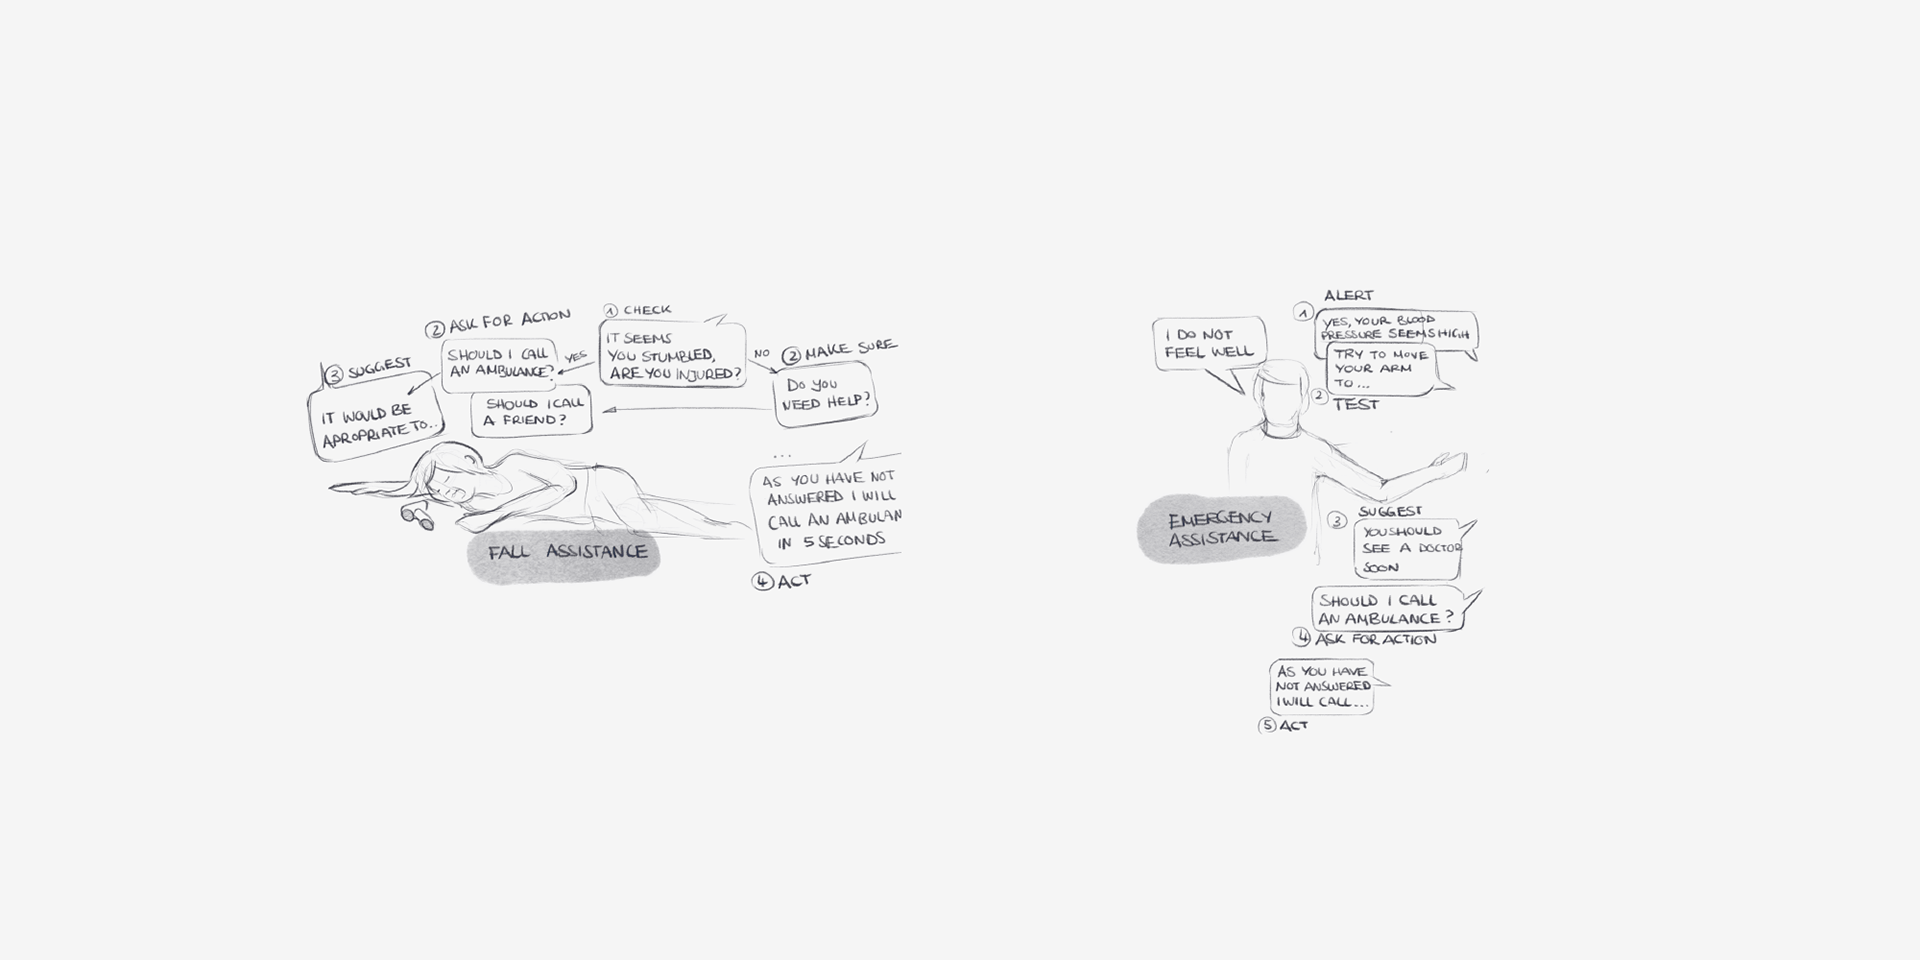 1 CHECK
IT SEEMS
YOU STUMBLED,
ARE YOU INJURED?
YES
NO
2 ASK FOR ACTION
SHOULD I CALL
AN AMBULANCE?
SHOULD I CALL
A FRIEND?
2 MAKE SURE
DO YOU
NEED HELP?
3 SUGGEST
IT WOULD BE
APROPRIATE TO..
...
AS YOU HAVE NOT
ANSWERED I WILL
CALL AN AMBULAN
IN 5 SECONDS
4 ACT
FALL ASSISTANCE
I DO NOT
FEEL WELL
ALERT
1
YES, YOUR BLOOD
PRESSURE SEEMS HIGH
TRY TO MOVE
YOUR ARM
TO...
2 TEST
EMERGENCY
ASSISTANCE
3 SUGGEST
YOU SHOULD
SEE A DOCTOR
SOON
SHOULD I CALL
AN AMBULANCE?
4 ASK FOR ACTION
AS YOU HAVE
NOT ANSWERED
I WILL CALL...
5 ACT